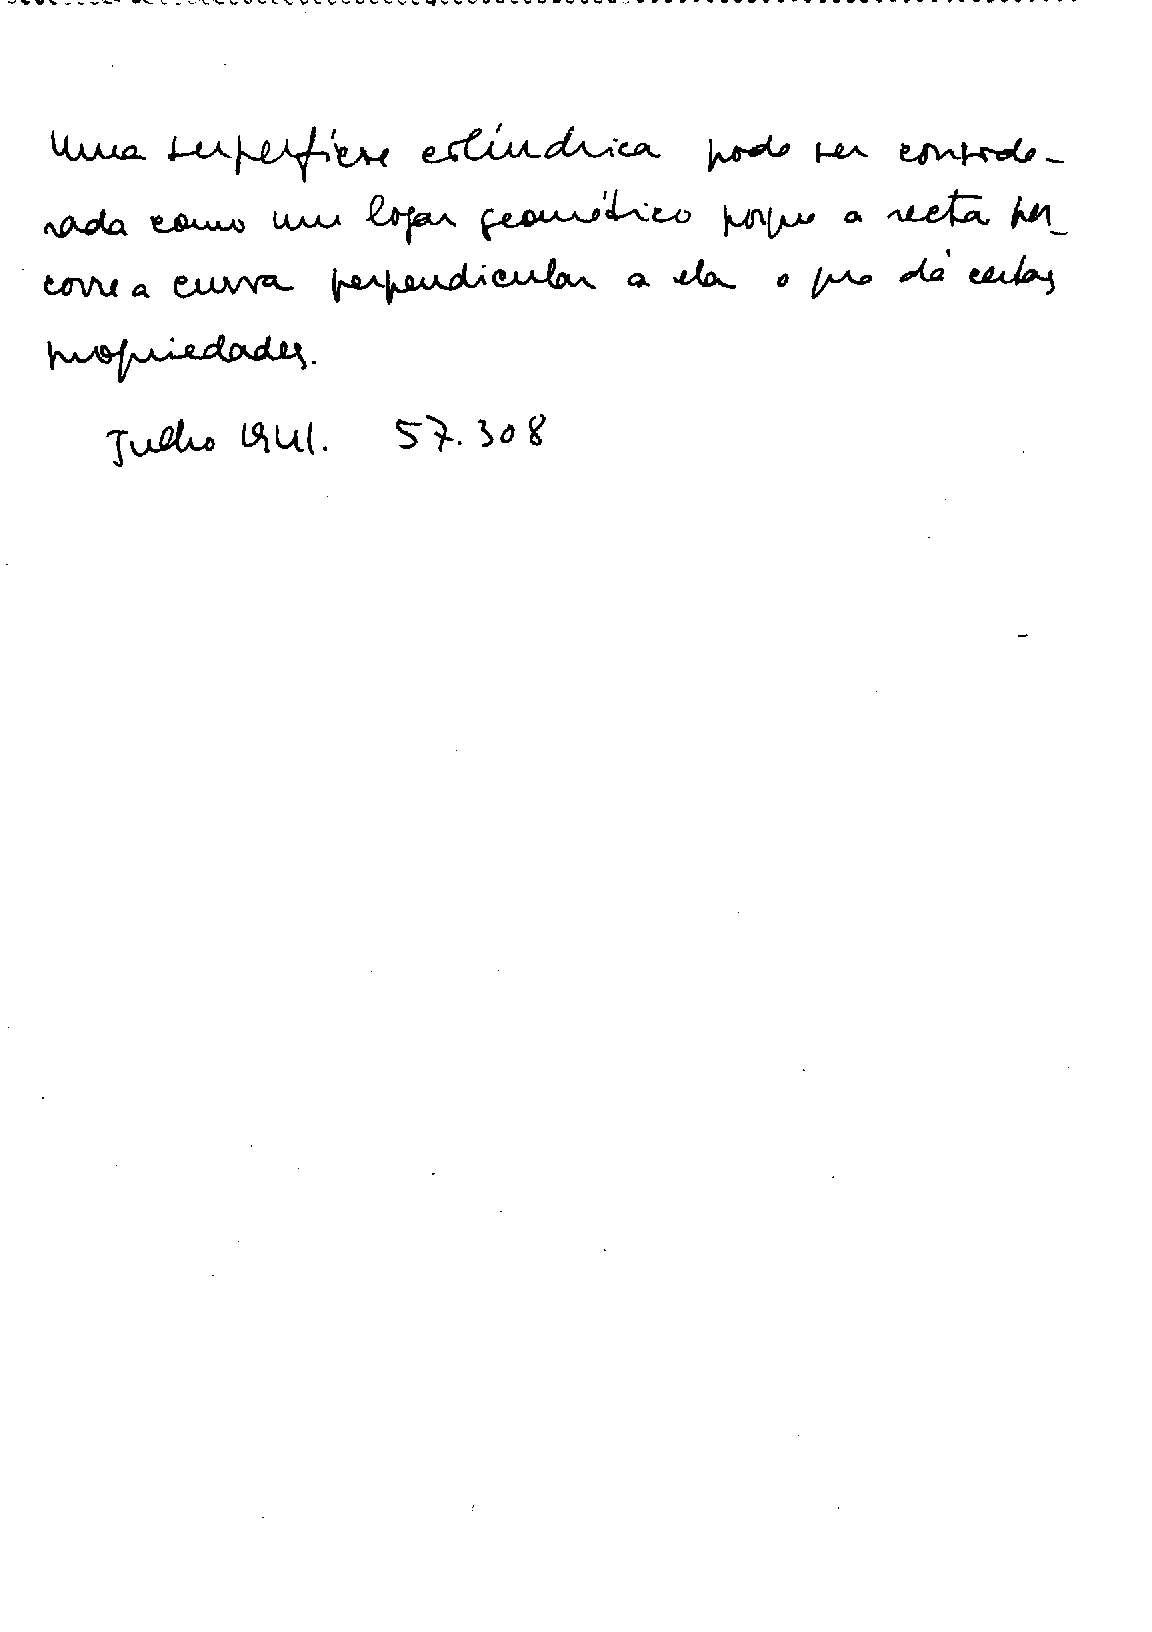 Uma superfície cilíndrica pode ser conside-
rada como um logar geométrico porque a recta per-
corre a curva perpendicular a ela o que dá certas
propriedades.
Julho 1941. 57.308